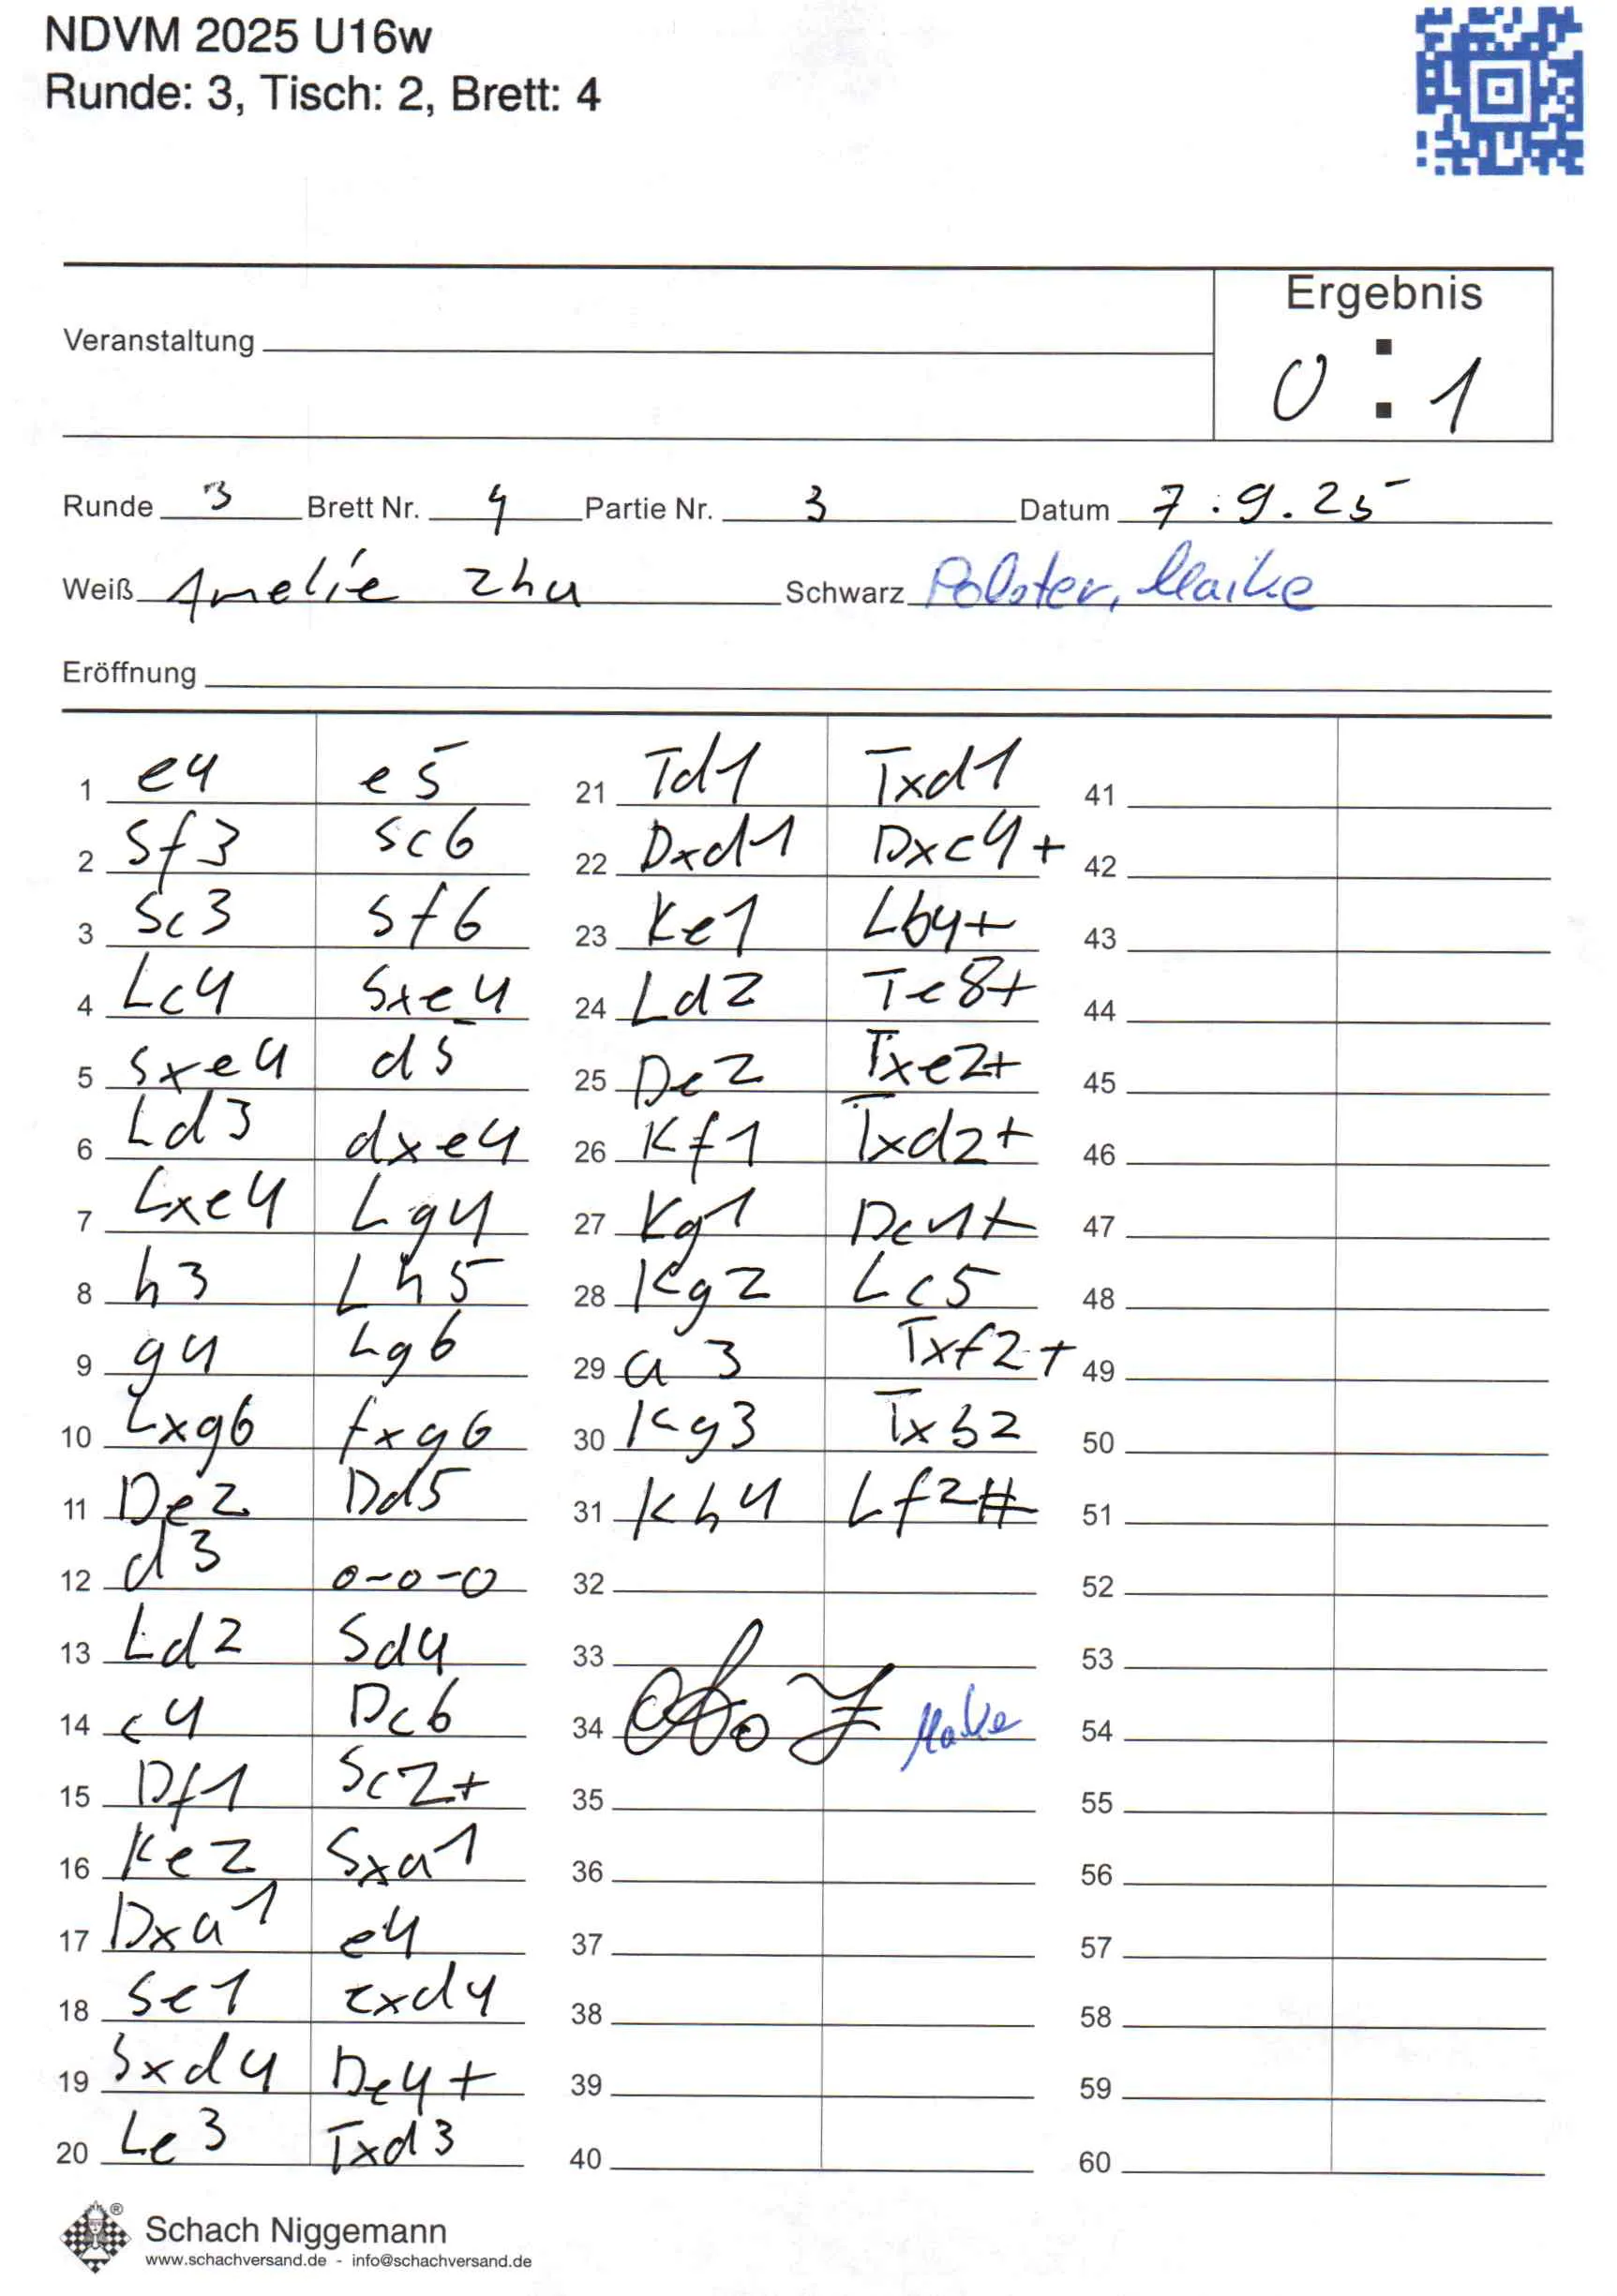 NDVM 2025 U16w
Runde: 3, Tisch: 2, Brett: 4
Ergebnis
Veranstaltung
0 : 1
Runde 3 Brett Nr. 4 Partie Nr. 3 Datum 7.9.25
Weiß Amelie Zhu Schwarz Polster, Maike
Eröffnung
1 e4 e5
2 Sf3 Sc6
3 Sc3 Sf6
4 Lc4 Sxe4
5 Sxe4 d5
6 Ld3 dxe4
7 Lxe4 Lg4
8 h3 Lh5
9 g4 Lg6
10 Lxg6 fxg6
11 De2 Dd5
12 d3 0-0-0
13 Ld2 Sd4
14 c4 Dc6
15 Df1 Sc2+
16 Ke2 Sxa1
17 Dxa1 e4
18 Se1 exd4
19 Sxd4 De4+
20 Le3 Txd3
21 Td1 Txd1
22 Dxd1 Dxc4+
23 Ke1 Lb4+
24 Ld2 Te8+
25 De2 Txe2+
26 Kf1 Txd2+
27 Kg1 Dc1+
28 Kg2 Lc5
29 a3 Txf2+
30 Kg3 Txb2
31 Kh4 Lf2#
32
33
34 Maike
35
36
37
38
39
40
41
42
43
44
45
46
47
48
49
50
51
52
53
54
55
56
57
58
59
60
Schach Niggemann
www.schachversand.de - info@schachversand.de